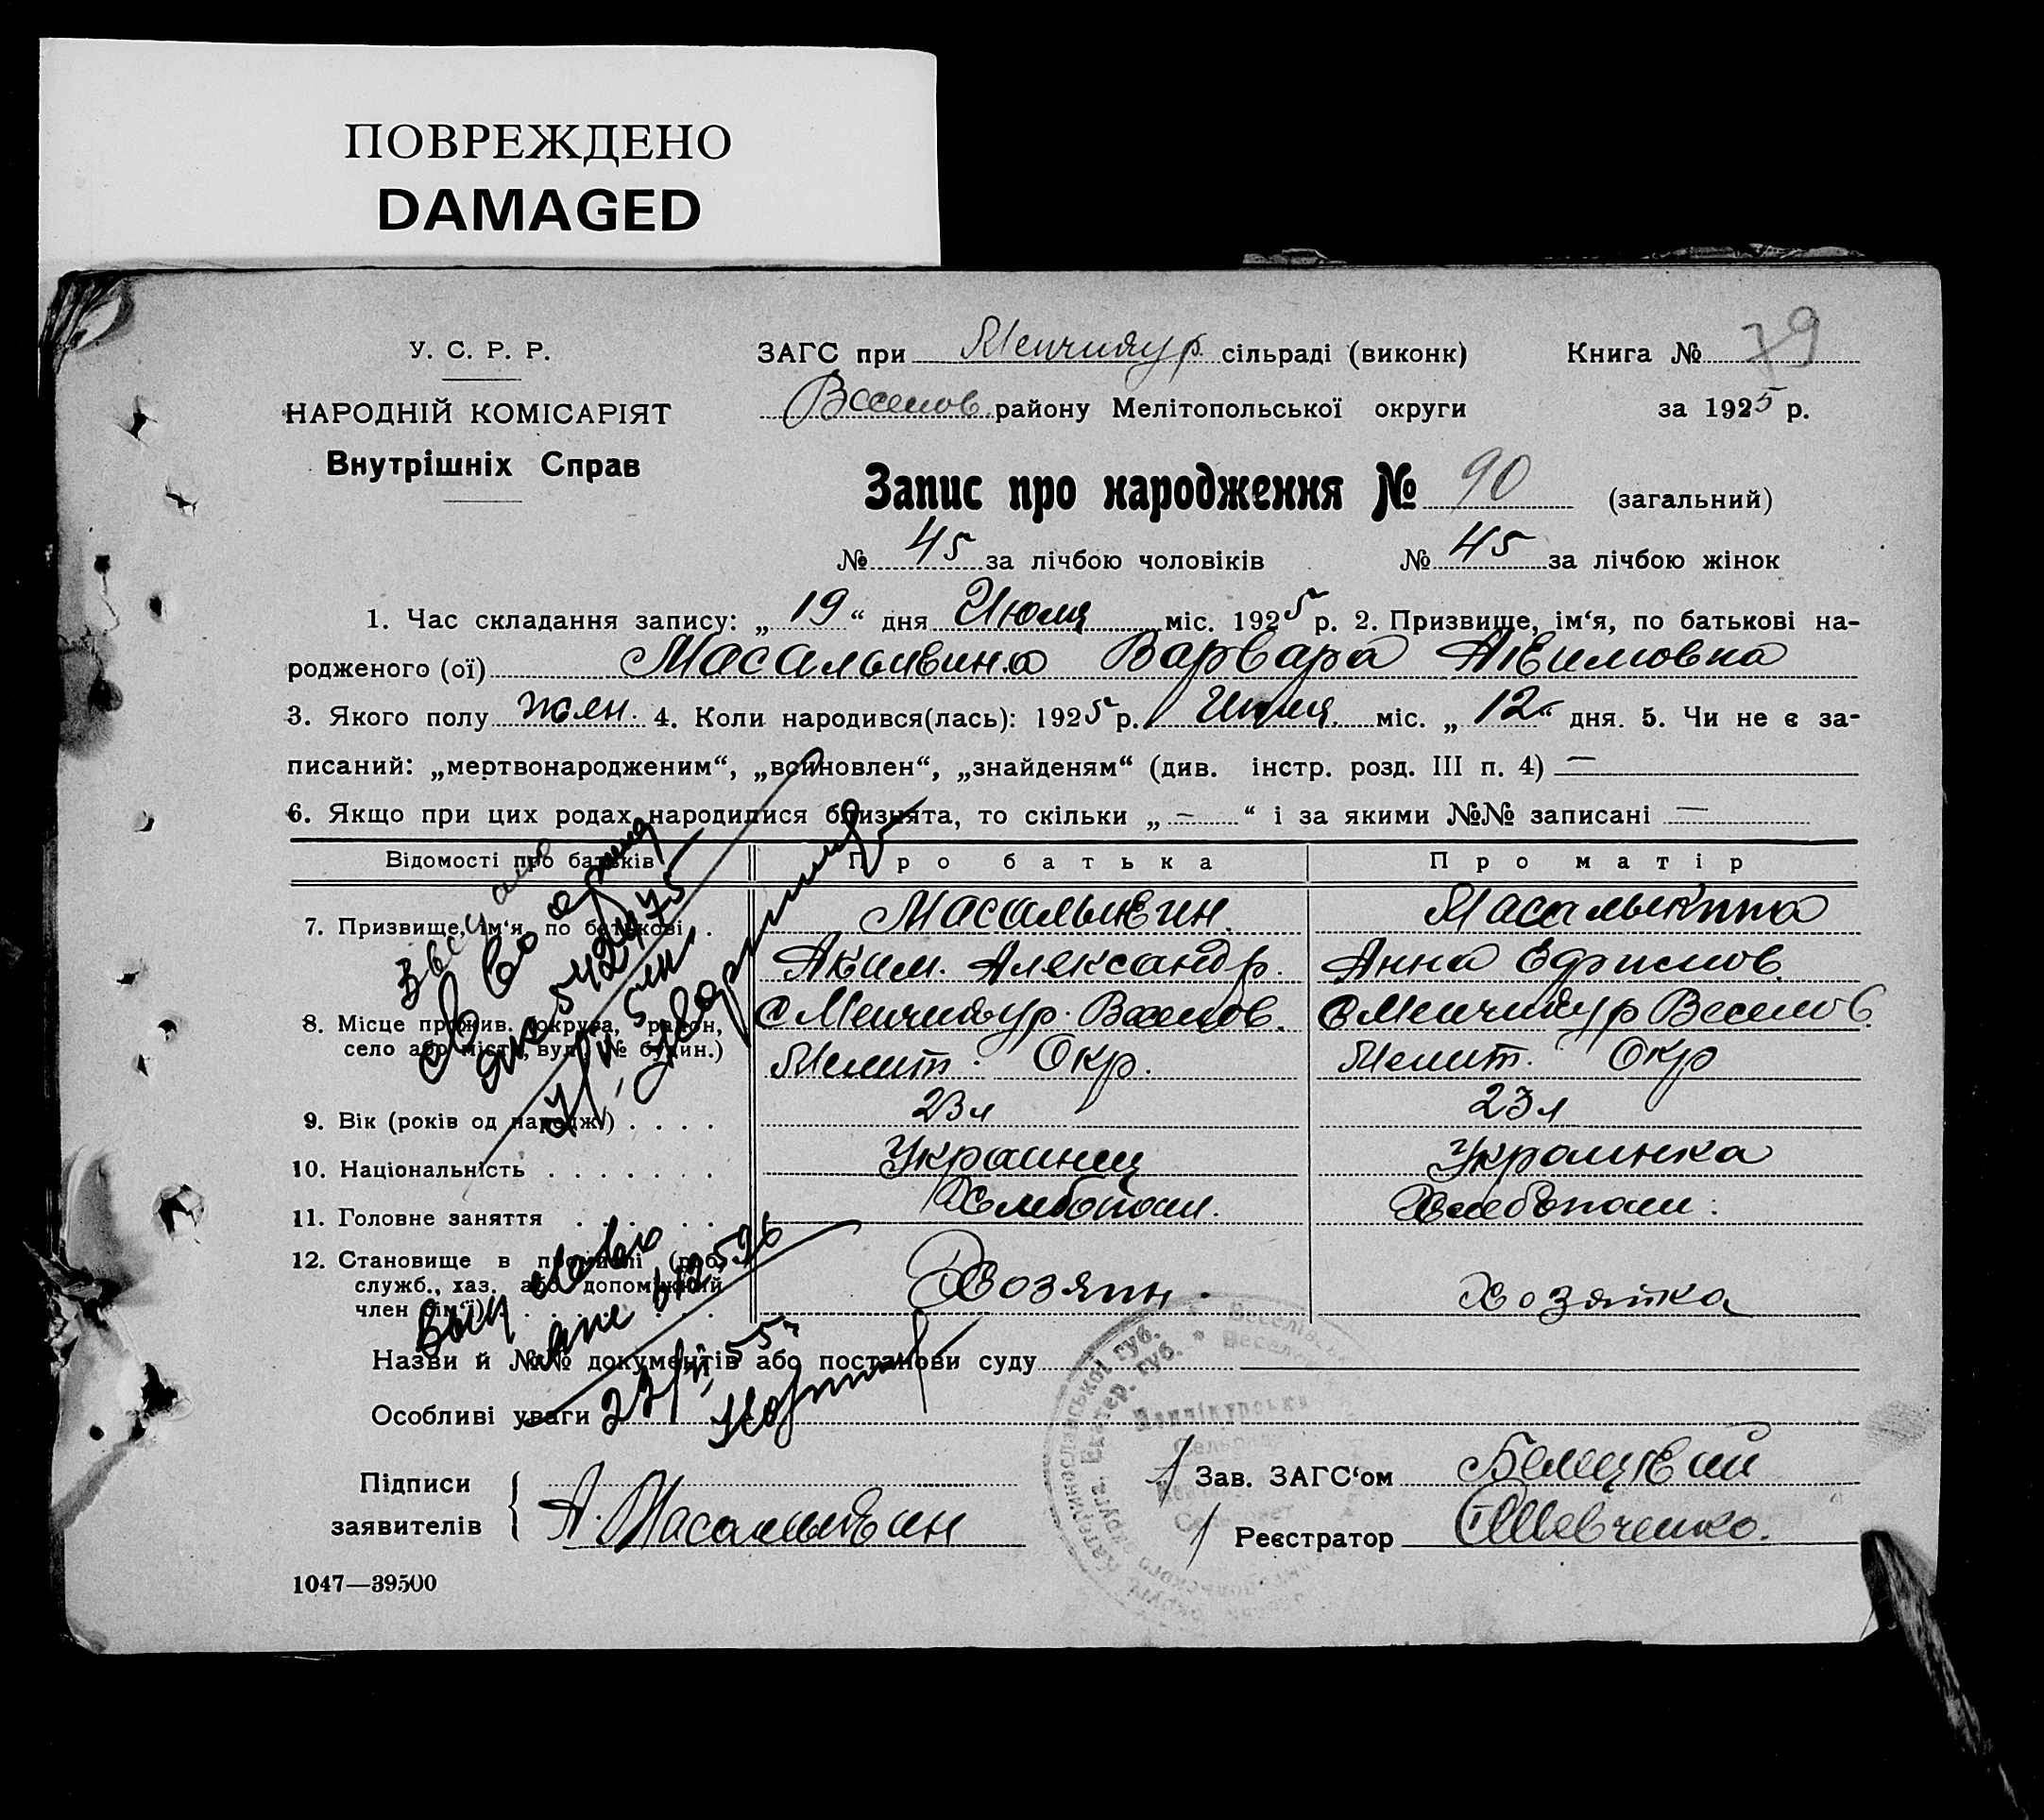 ПОВРЕЖДЕНО
DAMAGED
У. С. Р. Р.
НАРОДНІЙ КОМІСАРІЯТ
Внутрішніх Справ
ЗАГС при Менчикур. сільраді (виконк) Книга № 79
Веселов. району Мелітопольської округи за 1925 р.
Запис про народження № 90 (загальний)
№ 45 за лічбою чоловіків № 45 за лічбою жінок
1. Час складання запису: „19“ дня Июля міс. 1925 р. 2. Призвище, ім‘я, по батькові на-
родженого (ої) Масалыкина Варвара Акимовна
3. Якого полу жен. 4. Коли народився(лась): 1925 р. Июля міс. „12“ дня. 5. Чи не є за-
писаний: „мертвонародженим“, „всиновлен“, „знайденям“ (див. інстр. розд. III п. 4) —
6. Якщо при цих родах народилися близнята, то скільки „—“ і за якими №№ записані —
Відомості про батьків Про батька Про матір
7. Призвище, ім‘я, по батькові . Масалыкин. Масалыкина
Аким. Александр. Анна Ефимов.
8. Місце прожив. (округа, район, с Менчикур. Веселов. с Менчикур Веселов.
село або місто, вул., № будин.) Мелит. Окр. Мелит. Окр
9. Вік (років од народж.) . . . . 23 л 23 л
10. Національність . . . . . . . Украинец Украинка
11. Головне заняття . . . . . . Хлебопаш. Хлебопаш.
12. Становище в промислі (роб., Хозяин. Хозяйка
служб., хаз. або допоміжний
член сім‘ї) . . . .
Назви й №№ документів або постанови суду
Особливі уваги
27/II 55
Підписи заявителів А. Масалыкин
Зав. ЗАГС‘ом Белецкий
Реєстратор Шевченко.
1047—39500